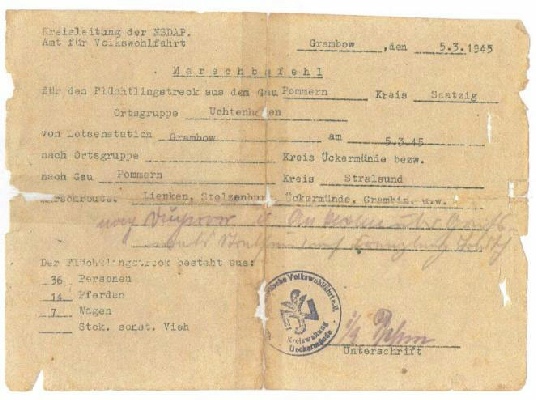 Kreisleitung der NSDAP.
Amt für Volkswohlfahrt
Grambow, den 5.3.1945
Marschbefehl
für den Flüchtlingstreck aus dem Gau Pommern Kreis Saatzig
Ortsgruppe Uchtenhagen
von Lotsenstation Grambow am 5.3.45
nach Ortsgruppe Kreis Ückermünde bezw.
nach Gau Pommern Kreis Stralsund
Marschroute: Liepken, Ückermünde, Grambin, usw.
Der Flüchtlingstreck besteht aus:
36 Personen
14 Pferden
7 Wagen
Stck. sonst. Vieh
Unterschrift